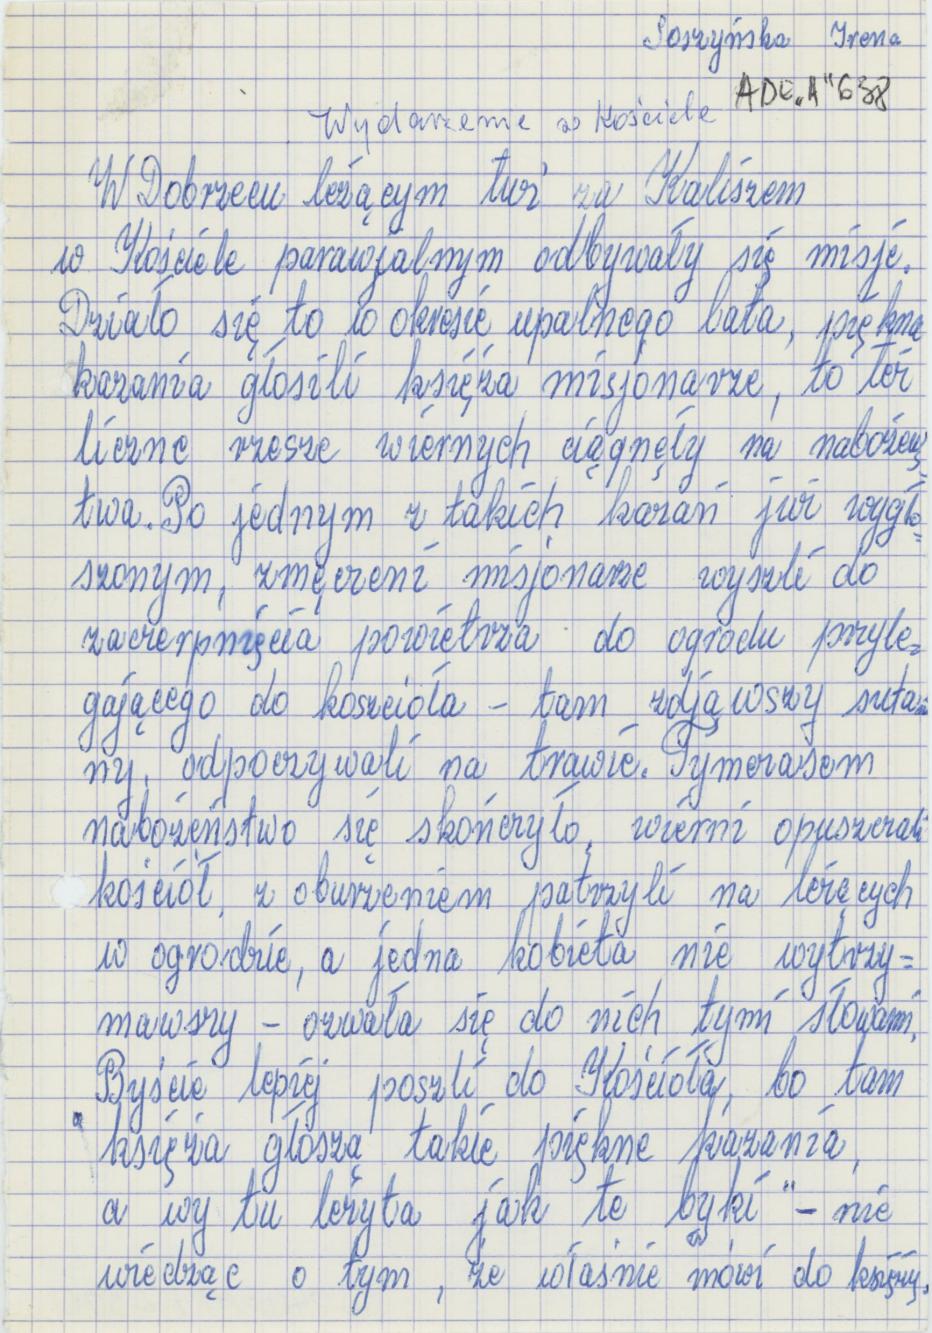 Soszyńska Irena
ADE „A" 638
Wydarzenie w Kościele
W Dobrzecu leżącym tuż za Kaliszem
w Kościele parawjalnym odbywały się misje.
Działo się to w okresie upalnego lata, piękna
kazania głosili księża misjonarze, to też
liczne rzesze wiernych ciągnęły na nabożeń=
twa. Po jednym z takich kazań już wygło=
szonym, zmęczeni misjonarze wyszli do
zaczerpnięcia powietrza do ogrodu przyle=
gającego do koszcioła – tam zdjąwszy suta=
ny, odpoczywali na trawie. Tymczasem
nabożeństwo się skończyło, wierni opuszczali
kościół, z oburzeniem patrzyli na leżących
w ogrodzie, a jedna kobieta nie wytrzy=
mawszy – ozwała się do nich tymi słowami,
Byście lepiej poszli do Kościoła, bo tam
księża głoszą takie piękne kazania,
a wy tu leżyta jak te byki" – nie
wiedząc o tym, że właśnie mówi do księży.